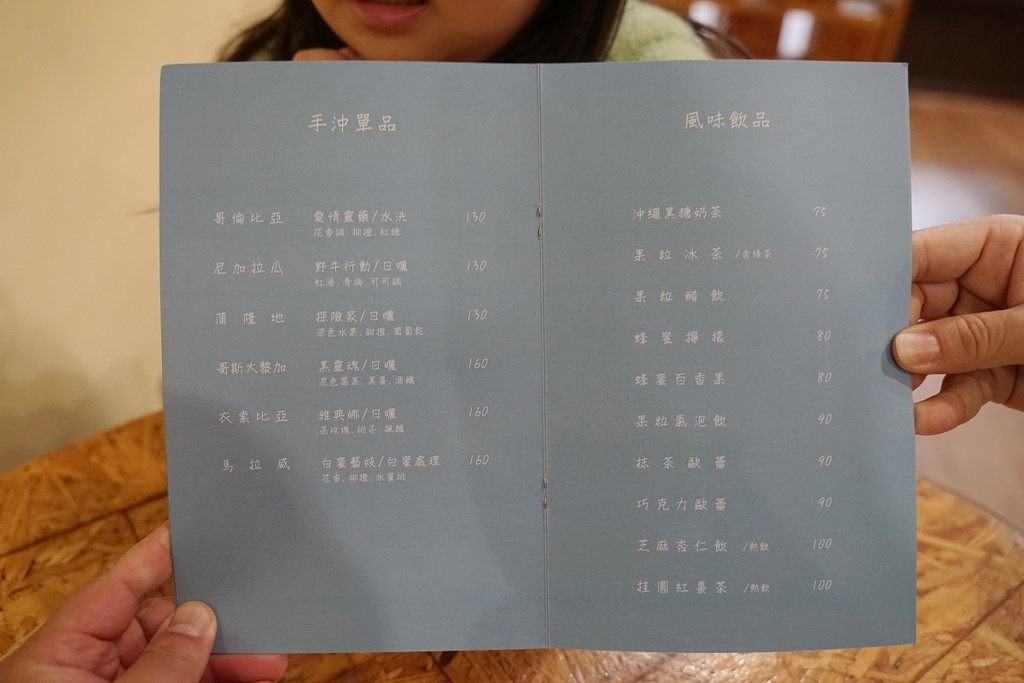 手沖單品
哥倫比亞 愛情靈藥/水洗 130
花香調.柳橙.紅糖
尼加拉瓜 野牛行動/日曬 130
紅酒.青檸.可可調
蒲隆地 探險家/日曬 130
深色水果.甜橙.葡萄乾
哥斯大黎加 黑靈魂/日曬 160
深色莓果.黑棗.酒釀
衣索比亞 雅典娜/日曬 160
茶玫瑰.桃子.楓糖
馬拉威 白蜜藝妓/白蜜處理 160
花香.柳橙.水蜜桃
風味飲品
沖繩黑糖奶茶 75
果粒冰茶 /含綠茶 75
果粒醋飲 75
蜂蜜檸檬 80
蜂蜜百香果 80
果粒氣泡飲 90
抹茶歐蕾 90
巧克力歐蕾 90
芝麻杏仁飲 /熱飲 100
桂圓紅棗茶 /熱飲 100